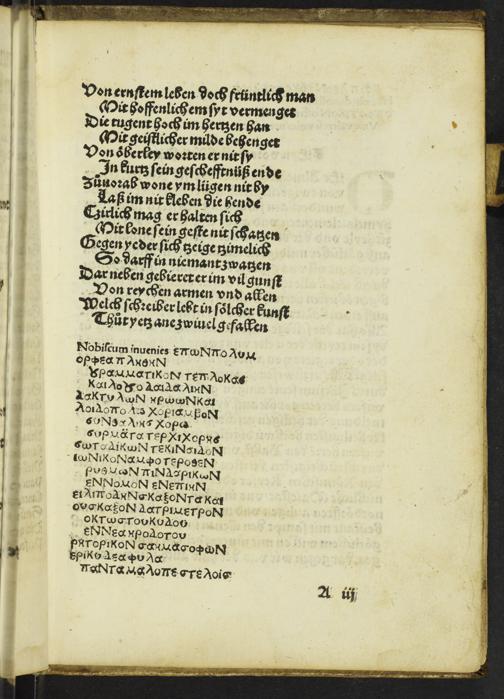 Von ernstem leben doch früntlich man
Mit hoffenlichem syt vermenget
Die tugent hoch im hertzen han
Mit geistlicher milde behenget
Von öberley worten er nit sy
In kurtz sein geschefftnüß ende
Zůuorab wone ym liigen nit by
Laß im nit kleben die hende
Czirlich mag er halten sich
Mit lone sein geste nit schatzen
Gegen yeder sich tzeige tzimelich
So darff in niemant zwatzen
Dar neben gebieret er im vil gunst
Von reychen armen vnd allen
Welch schreiber lebt in sölcher kunst
Thůt yetz ane zwiuel gefallen
Nobiscum inuenies επωΝπολυμ
ορφεα πληθηΝ
γραμματικοΝ τεπλοκας
και λογο δαιδαληΝ
δακτυλωΝ ηρωωΝ και
λοιδοπολο χοριαμβοΝ
συΝθαλης χορω
συρματα τερχιχορης
σωταδικωΝ τεκιΝαιδοΝ
ιωΝικοΝ αμφοτεροθεΝ
ρυθμωΝ πιΝδαρικωΝ
εΝΝομοΝ επεπηΝ
ειλιποδηΝ σκαζοΝτα και
ουσκαζοΝ δατριμετροΝ
οκτωστουκυδου
εΝΝεα ηροδοτου
ρητορικοΝ σαημασοφωΝ
ερικυδεαφυλα
παΝταμαλοπεστελοις
A iij